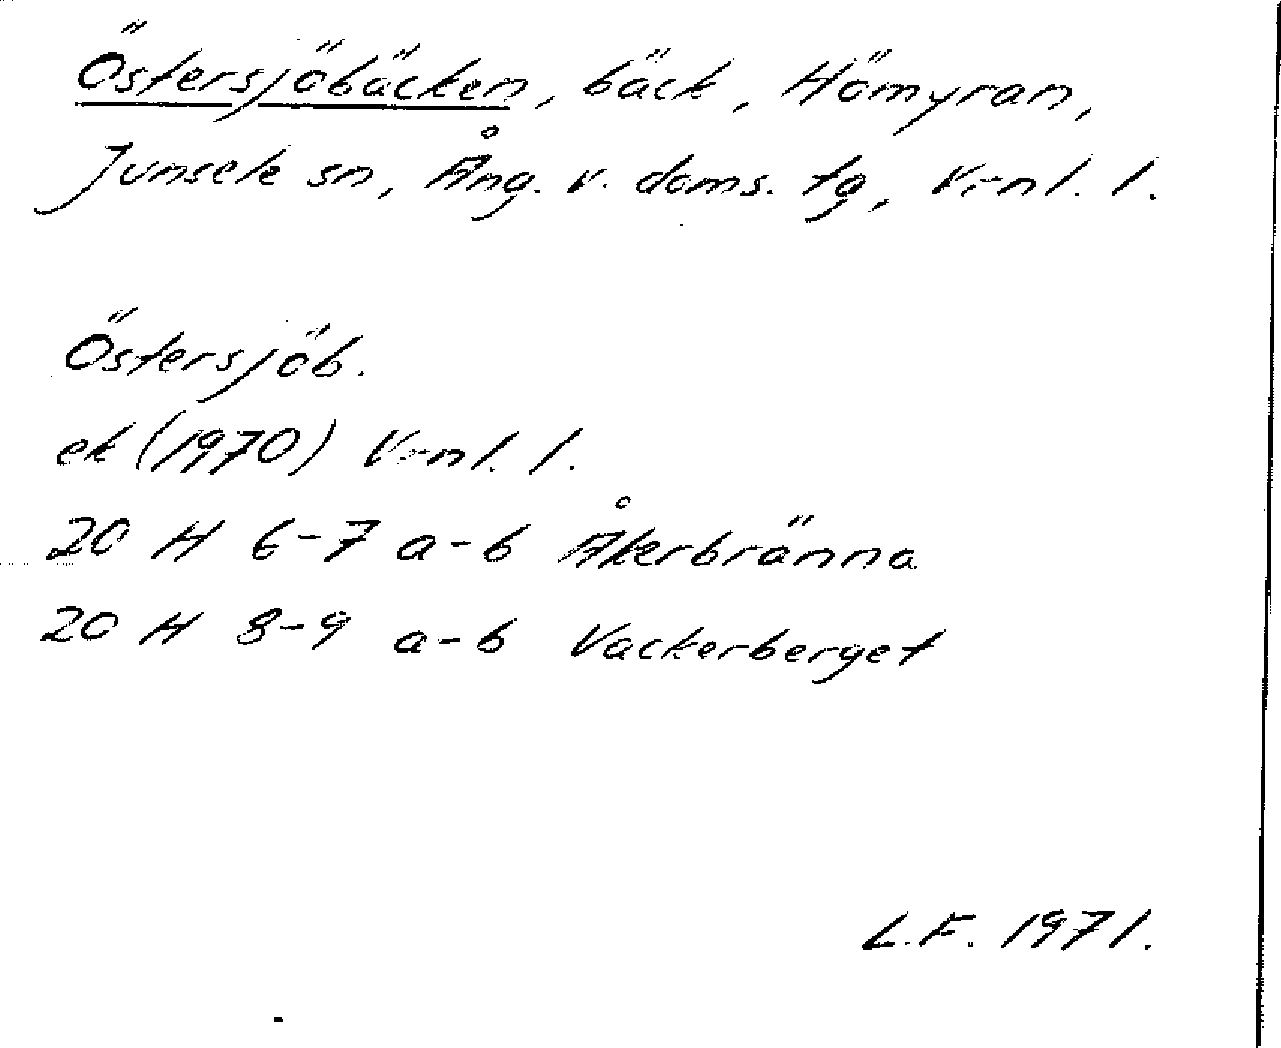 Östersjöbäcken, bäck, Hömyran,
Junsele sn, Ång. v. doms. tg, Vrnl. l.
Östersjöb.
ek (1970) Vrnl. l.
20 H 6-7 a-b Åkerbränna
20 H 8-9 a-b Vackerberget
L.F. 1971.